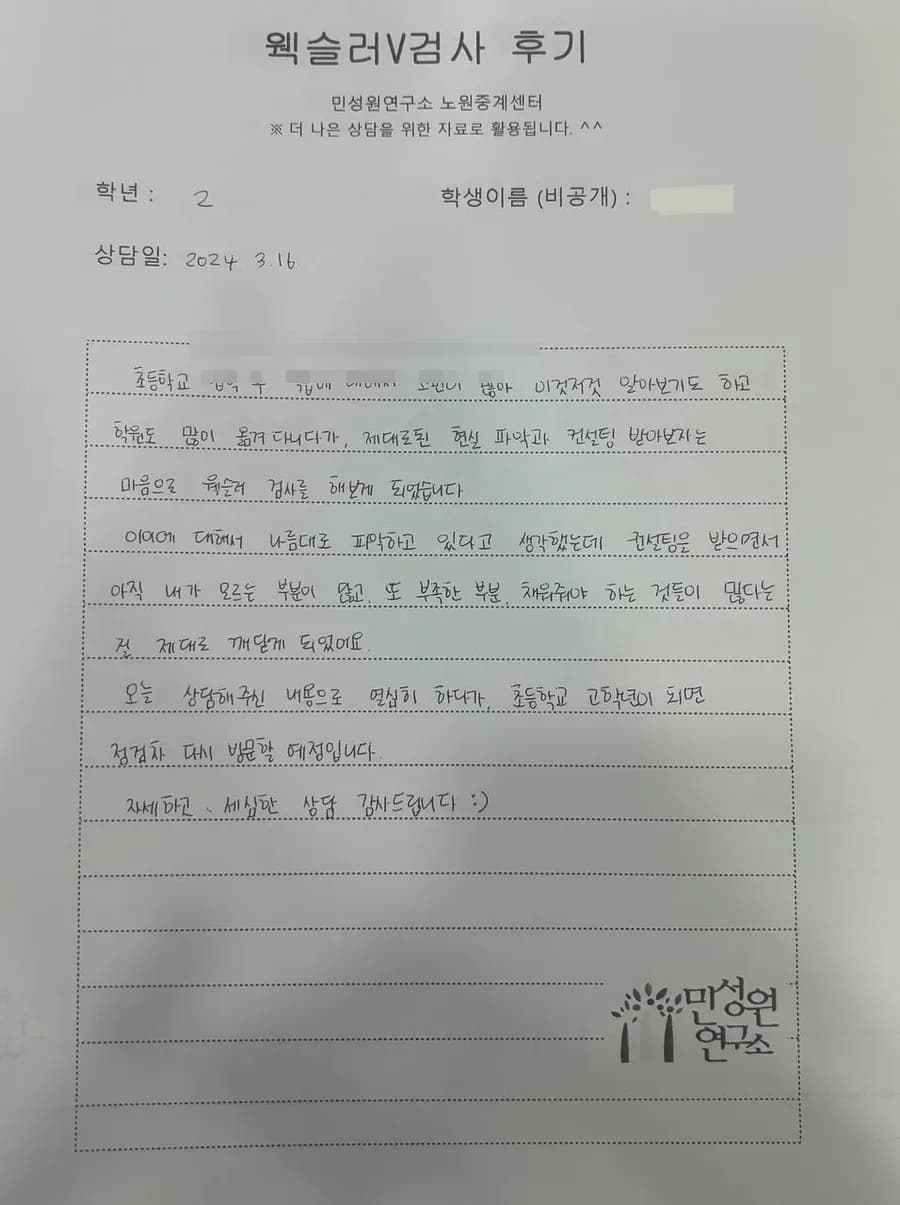 웩슬러V검사 후기
민성원연구소 노원중계센터
※ 더 나은 상담을 위한 자료로 활용됩니다. ^^
학년 : 2 학생이름 (비공개) :
상담일: 2024 3.16
초등학교 많아 이것저것 알아보기도 하고
학원도 많이 옮겨 다니다가, 제대로된 현실 파악과 컨설팅 받아보자는
마음으로 웩슬러 검사를 해보게 되었습니다
아이에 대해서 나름대로 파악하고 있다고 생각했는데 컨설팅을 받으면서
아직 내가 모르는 부분이 많고, 또 부족한 부분, 채워줘야 하는 것들이 많다는
걸 제대로 깨닫게 되었어요.
오늘 상담해주신 내용으로 열심히 하다가, 초등학교 고학년이 되면
점검차 다시 방문할 예정입니다.
자세하고, 세심한 상담 감사드립니다 :)
민성원
연구소